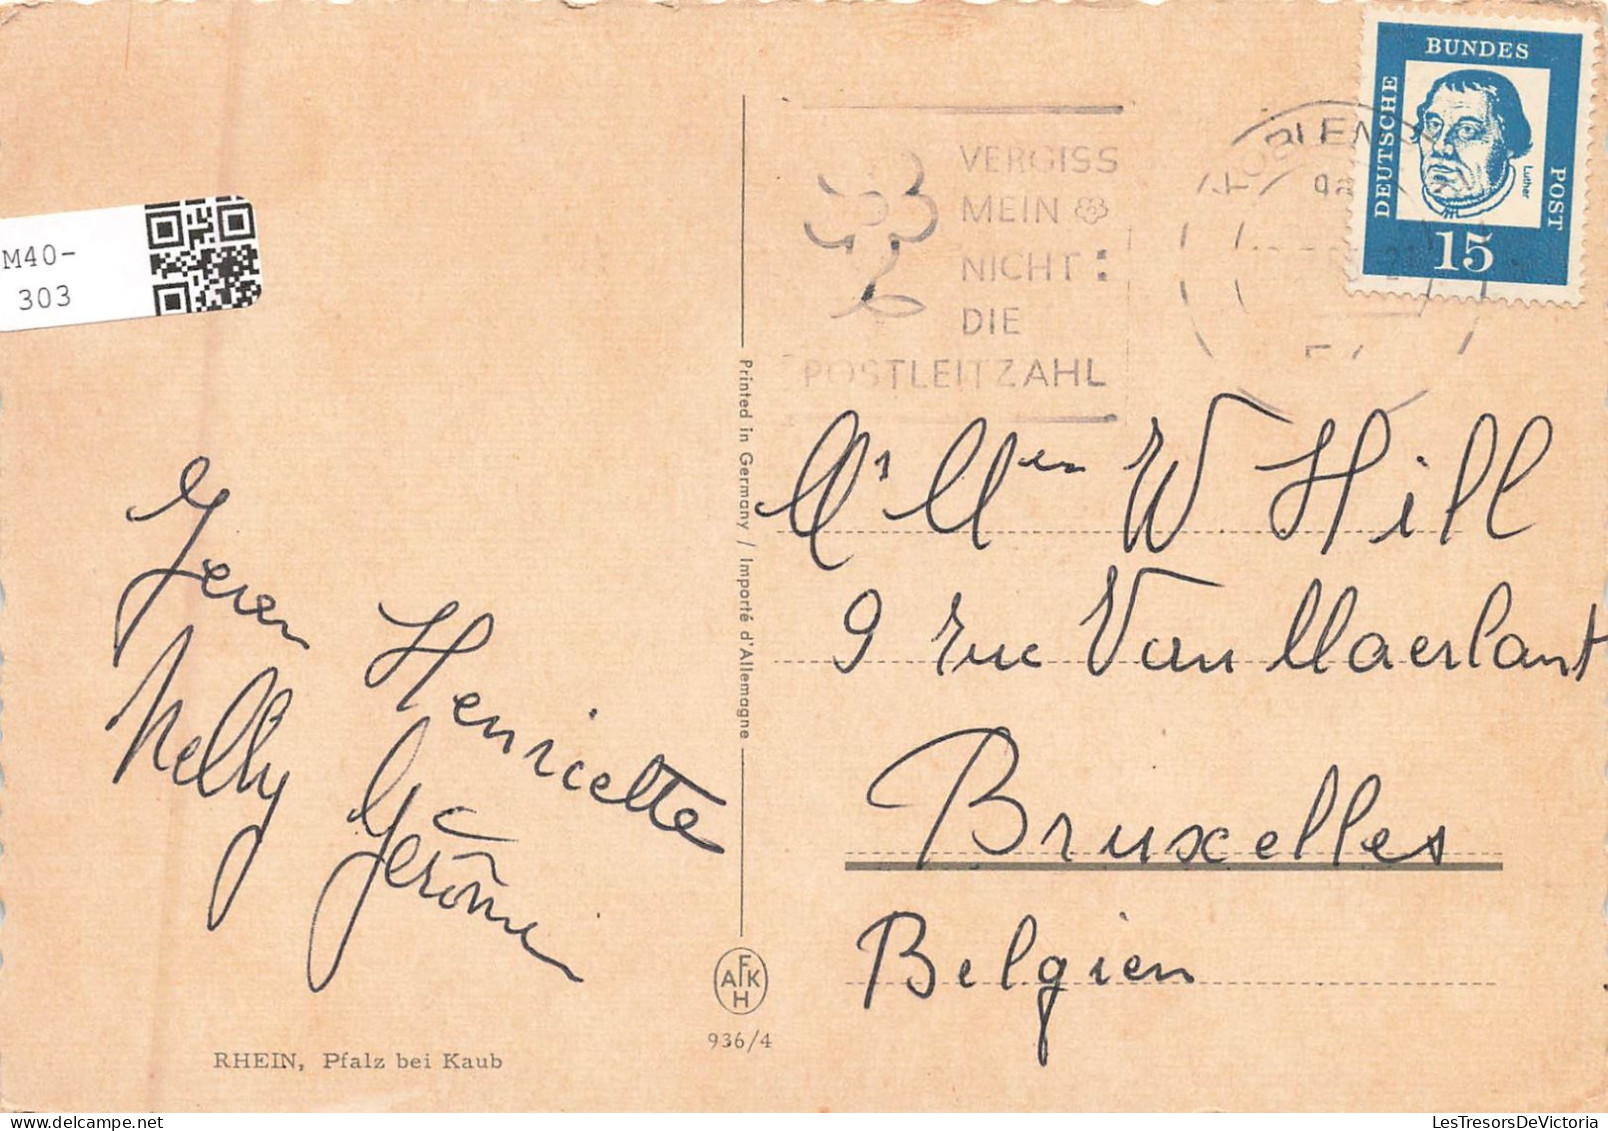 M40-
303
VERGISS
MEIN
NICHT:
DIE
POSTLEITZAHL
KOBLENZ
BUNDES
DEUTSCHE
POST
Luther
15
Printed in Germany / Importé d'Allemagne
Henriette
Nelly
Gérôme
W Hill
9 rue Van Maerlant
Bruxelles
Belgien
AFKH
936/4
RHEIN, Pfalz bei Kaub
LesTresorsDeVictoria.com